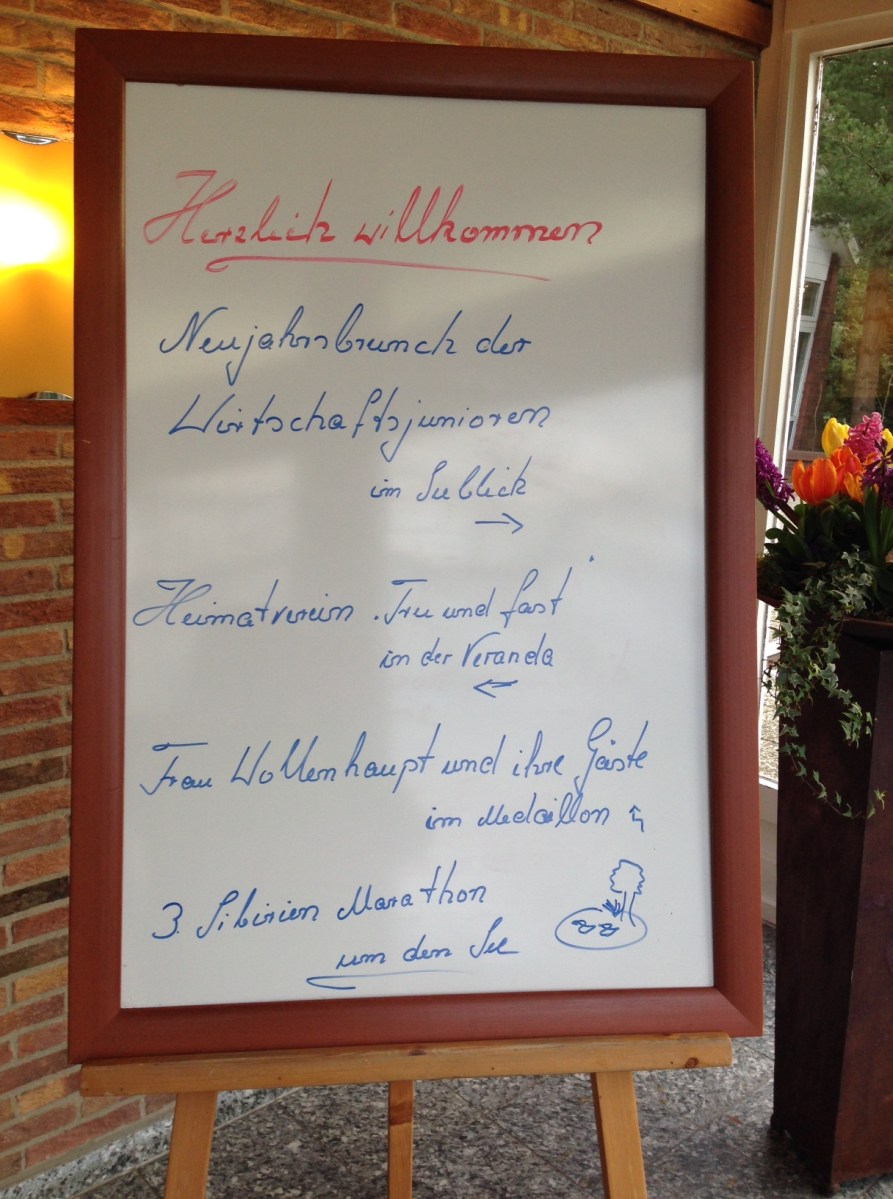 Herzlich willkommen
Neujahrsbrunch der
Wirtschaftsjunioren
im Seeblick
→
Heimatverein "Treu und fast"
in der Veranda
←
Frau Wollenhaupt und ihre Gäste
im Medaillon ↰
3. Sibirien Marathon
um den See